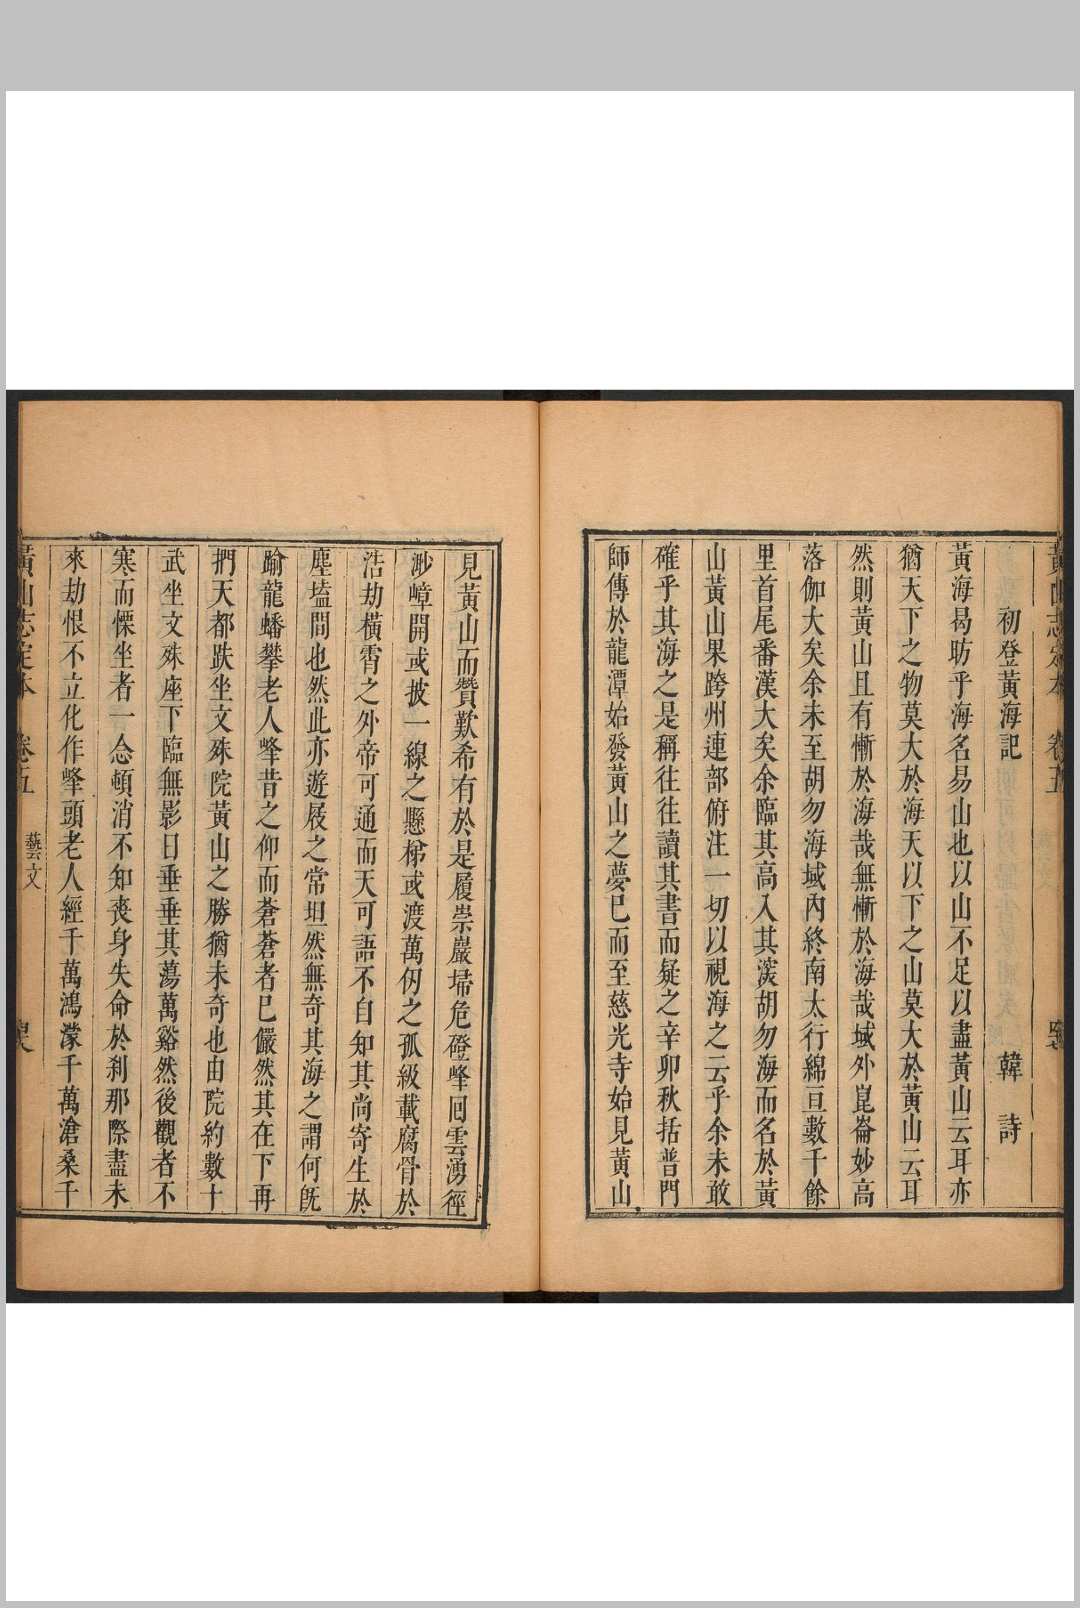 黃山志定本 卷五
初登黃海記 韓 詩
黃海曷昉乎海名易山也以山不足以盡黃山云耳亦
猶天下之物莫大於海天以下之山莫大於黃山云耳
然則黃山且有慚於海哉無慚於海哉域外崑崙妙高
落伽大矣余未至胡勿海域內終南太行綿亘數千餘
里首尾番漢大矣余臨其高入其深胡勿海而名於黃
山黃山果跨州連部俯注一切以視海之云乎余未敢
確乎其海之是稱往往讀其書而疑之辛卯秋括普門
師傳於龍潭始發黃山之夢已而至慈光寺始見黃山
見黃山而贊歎希有於是履崇巖埽危磴峰回雲湧徑
渺嶂開或披一線之懸梯或渡萬仞之孤級載腐骨於
浩劫橫霄之外帝可通而天可語不自知其尚寄生於
塵壒間也然此亦遊屐之常坦然無奇其海之謂何旣
踰龍蟠攀老人峰昔之仰而蒼蒼者已儼然其在下再
捫天都趺坐文殊院黃山之勝猶未奇也由院約數十
武坐文殊座下臨無影日垂垂其蕩萬谿然後觀者不
寒而慄坐者一念頓消不知喪身失命於刹那際盡未
來劫恨不立化作峰頭老人經千萬鴻濛千萬滄桑千
黃山志定本 卷五 藝文